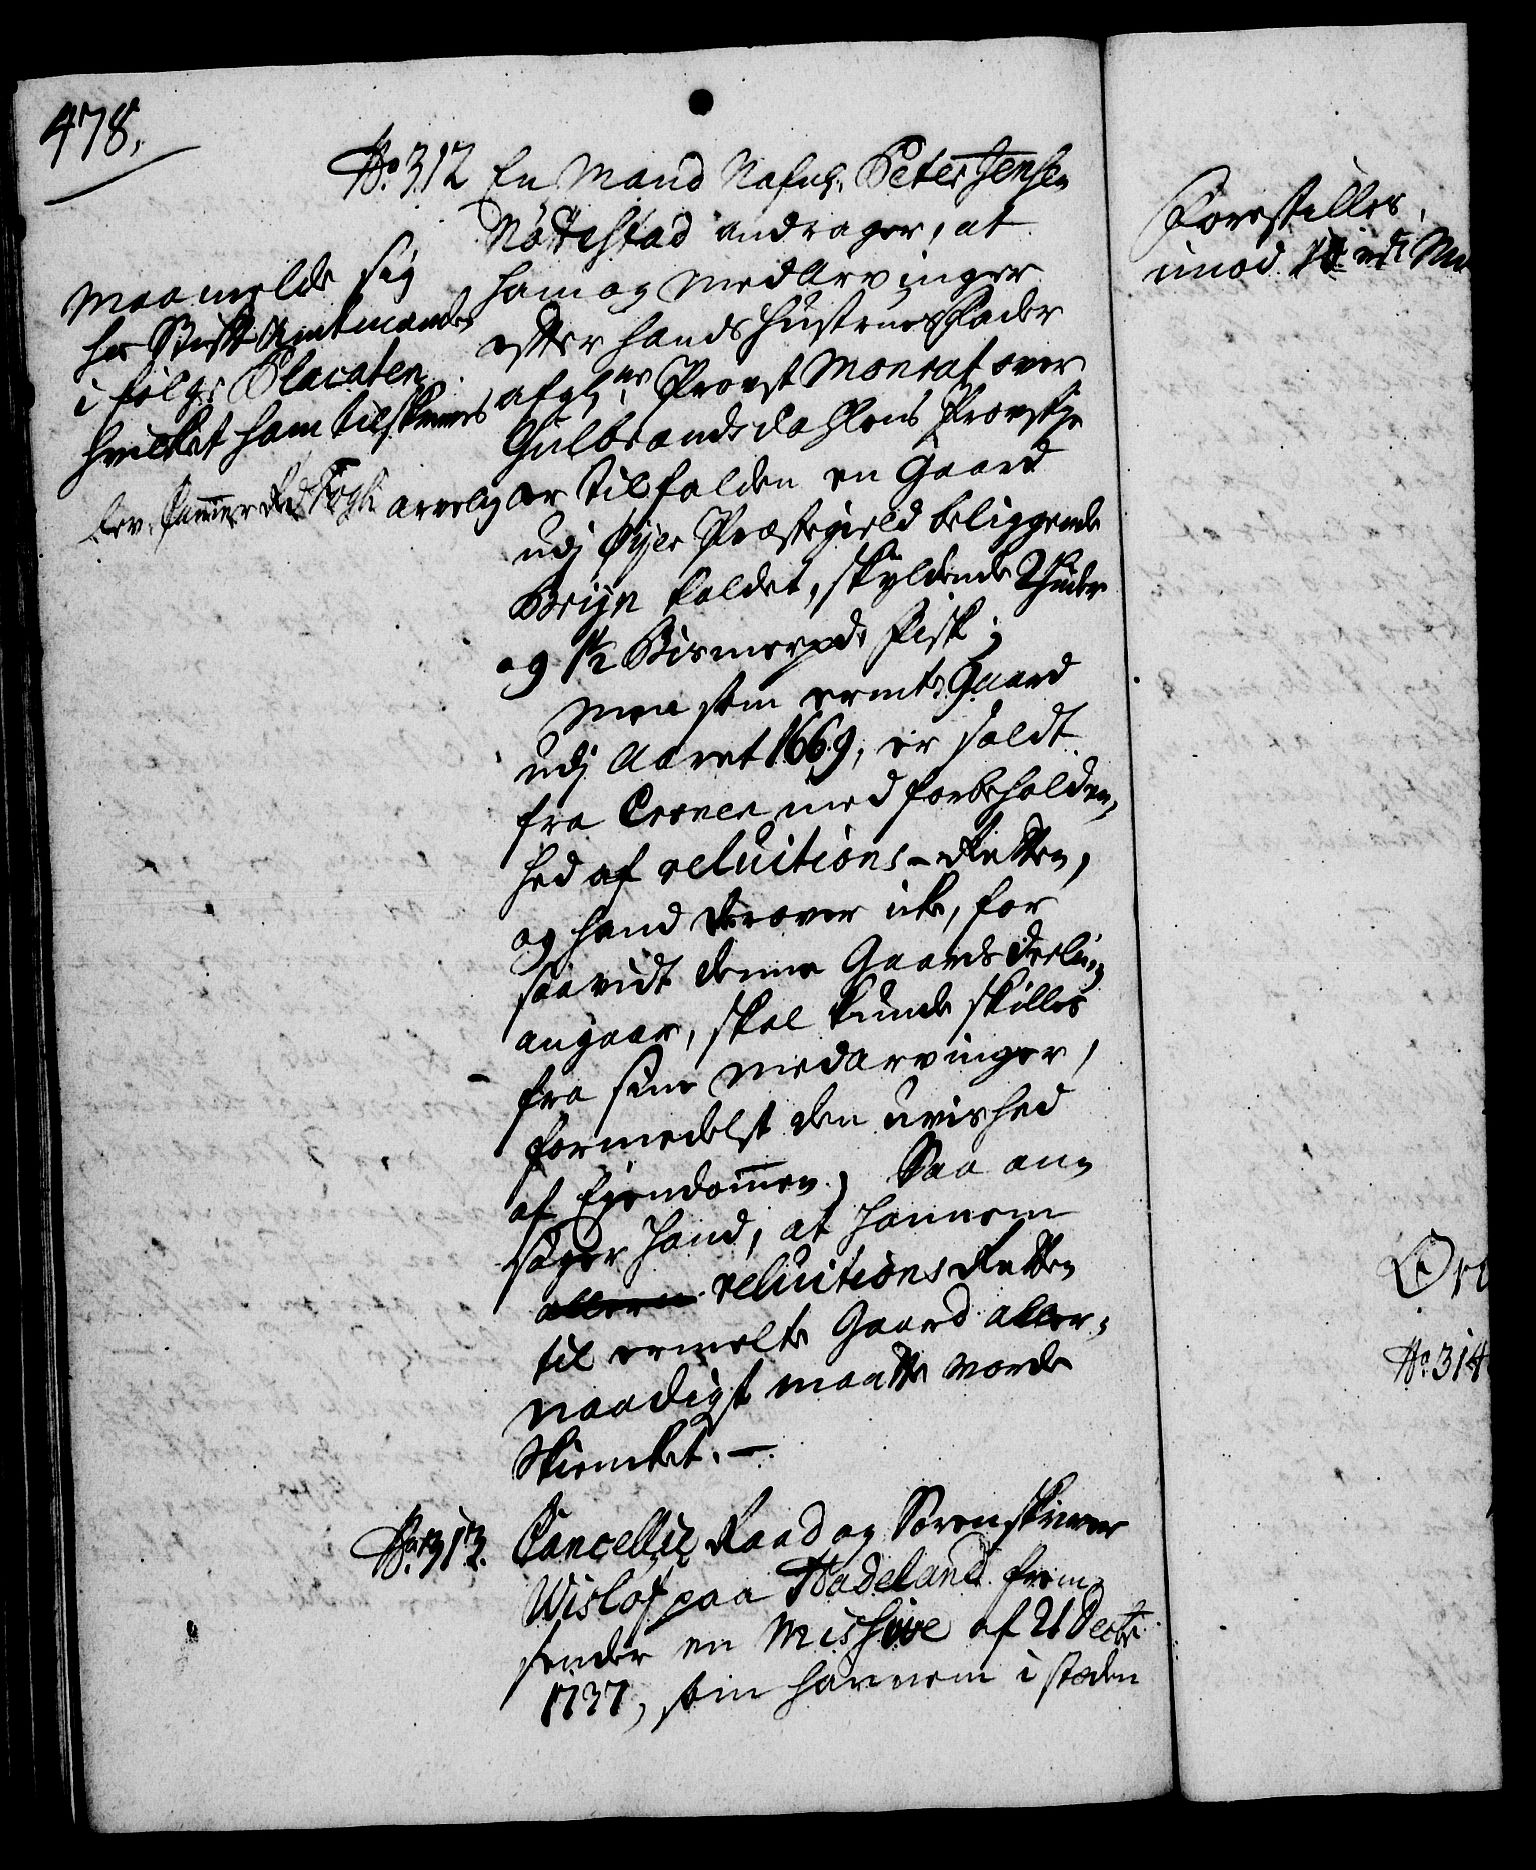 478.
No. 312 En Mand Nafnl. Peter Jensen
Nødtestad andrager, at
ham og Medarvinger
efter hands Hustrues Fader
afgl. Provst Monrat over
Gulbrandsdahlens Provstje
arvelig er tilfalden en Gaard
udj Øyer Præstegield beliggende
Brÿn kaldet, skyldende 2 Huder
og 1½ Bismerpd. Fisk;
Men som ermte. Gaard
udj Aaret 1669, er soldt
fra Cronen med forbeholden,
hed af reluitions-Retten,
og hand derover icke, for
saavidt denne Gaards deeling
angaar, skal kunde skilles
fra sine Medarvinger,
formedelst den uvished
af Ejendommen; Saa an,
søger hand, at hannem
allern reluitions Retten
til ermelte Gaard aller,
naadigst maatte vorde
Skienket. —
Maa melde sig
hos Stift Amtmanden
i følge Placaten
hvilket ham tilskrives
lev. Cammer Rd Fogh
No. 313. Cancellie Raad og Sorenskriver
Wisløf paa Hadeland frem,
sender en Missive af 21 Decbr.
1737, som hannem i steden
Forestilles,
imod
No. 314